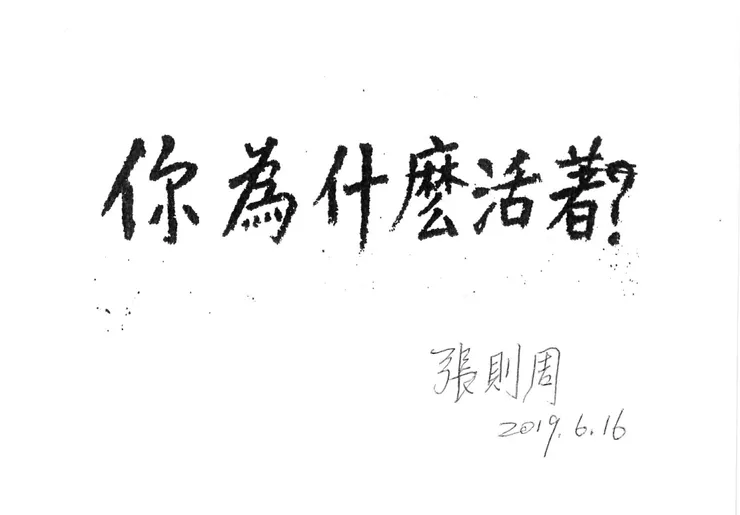 你為什麼活著?
張則周
2019.6.16